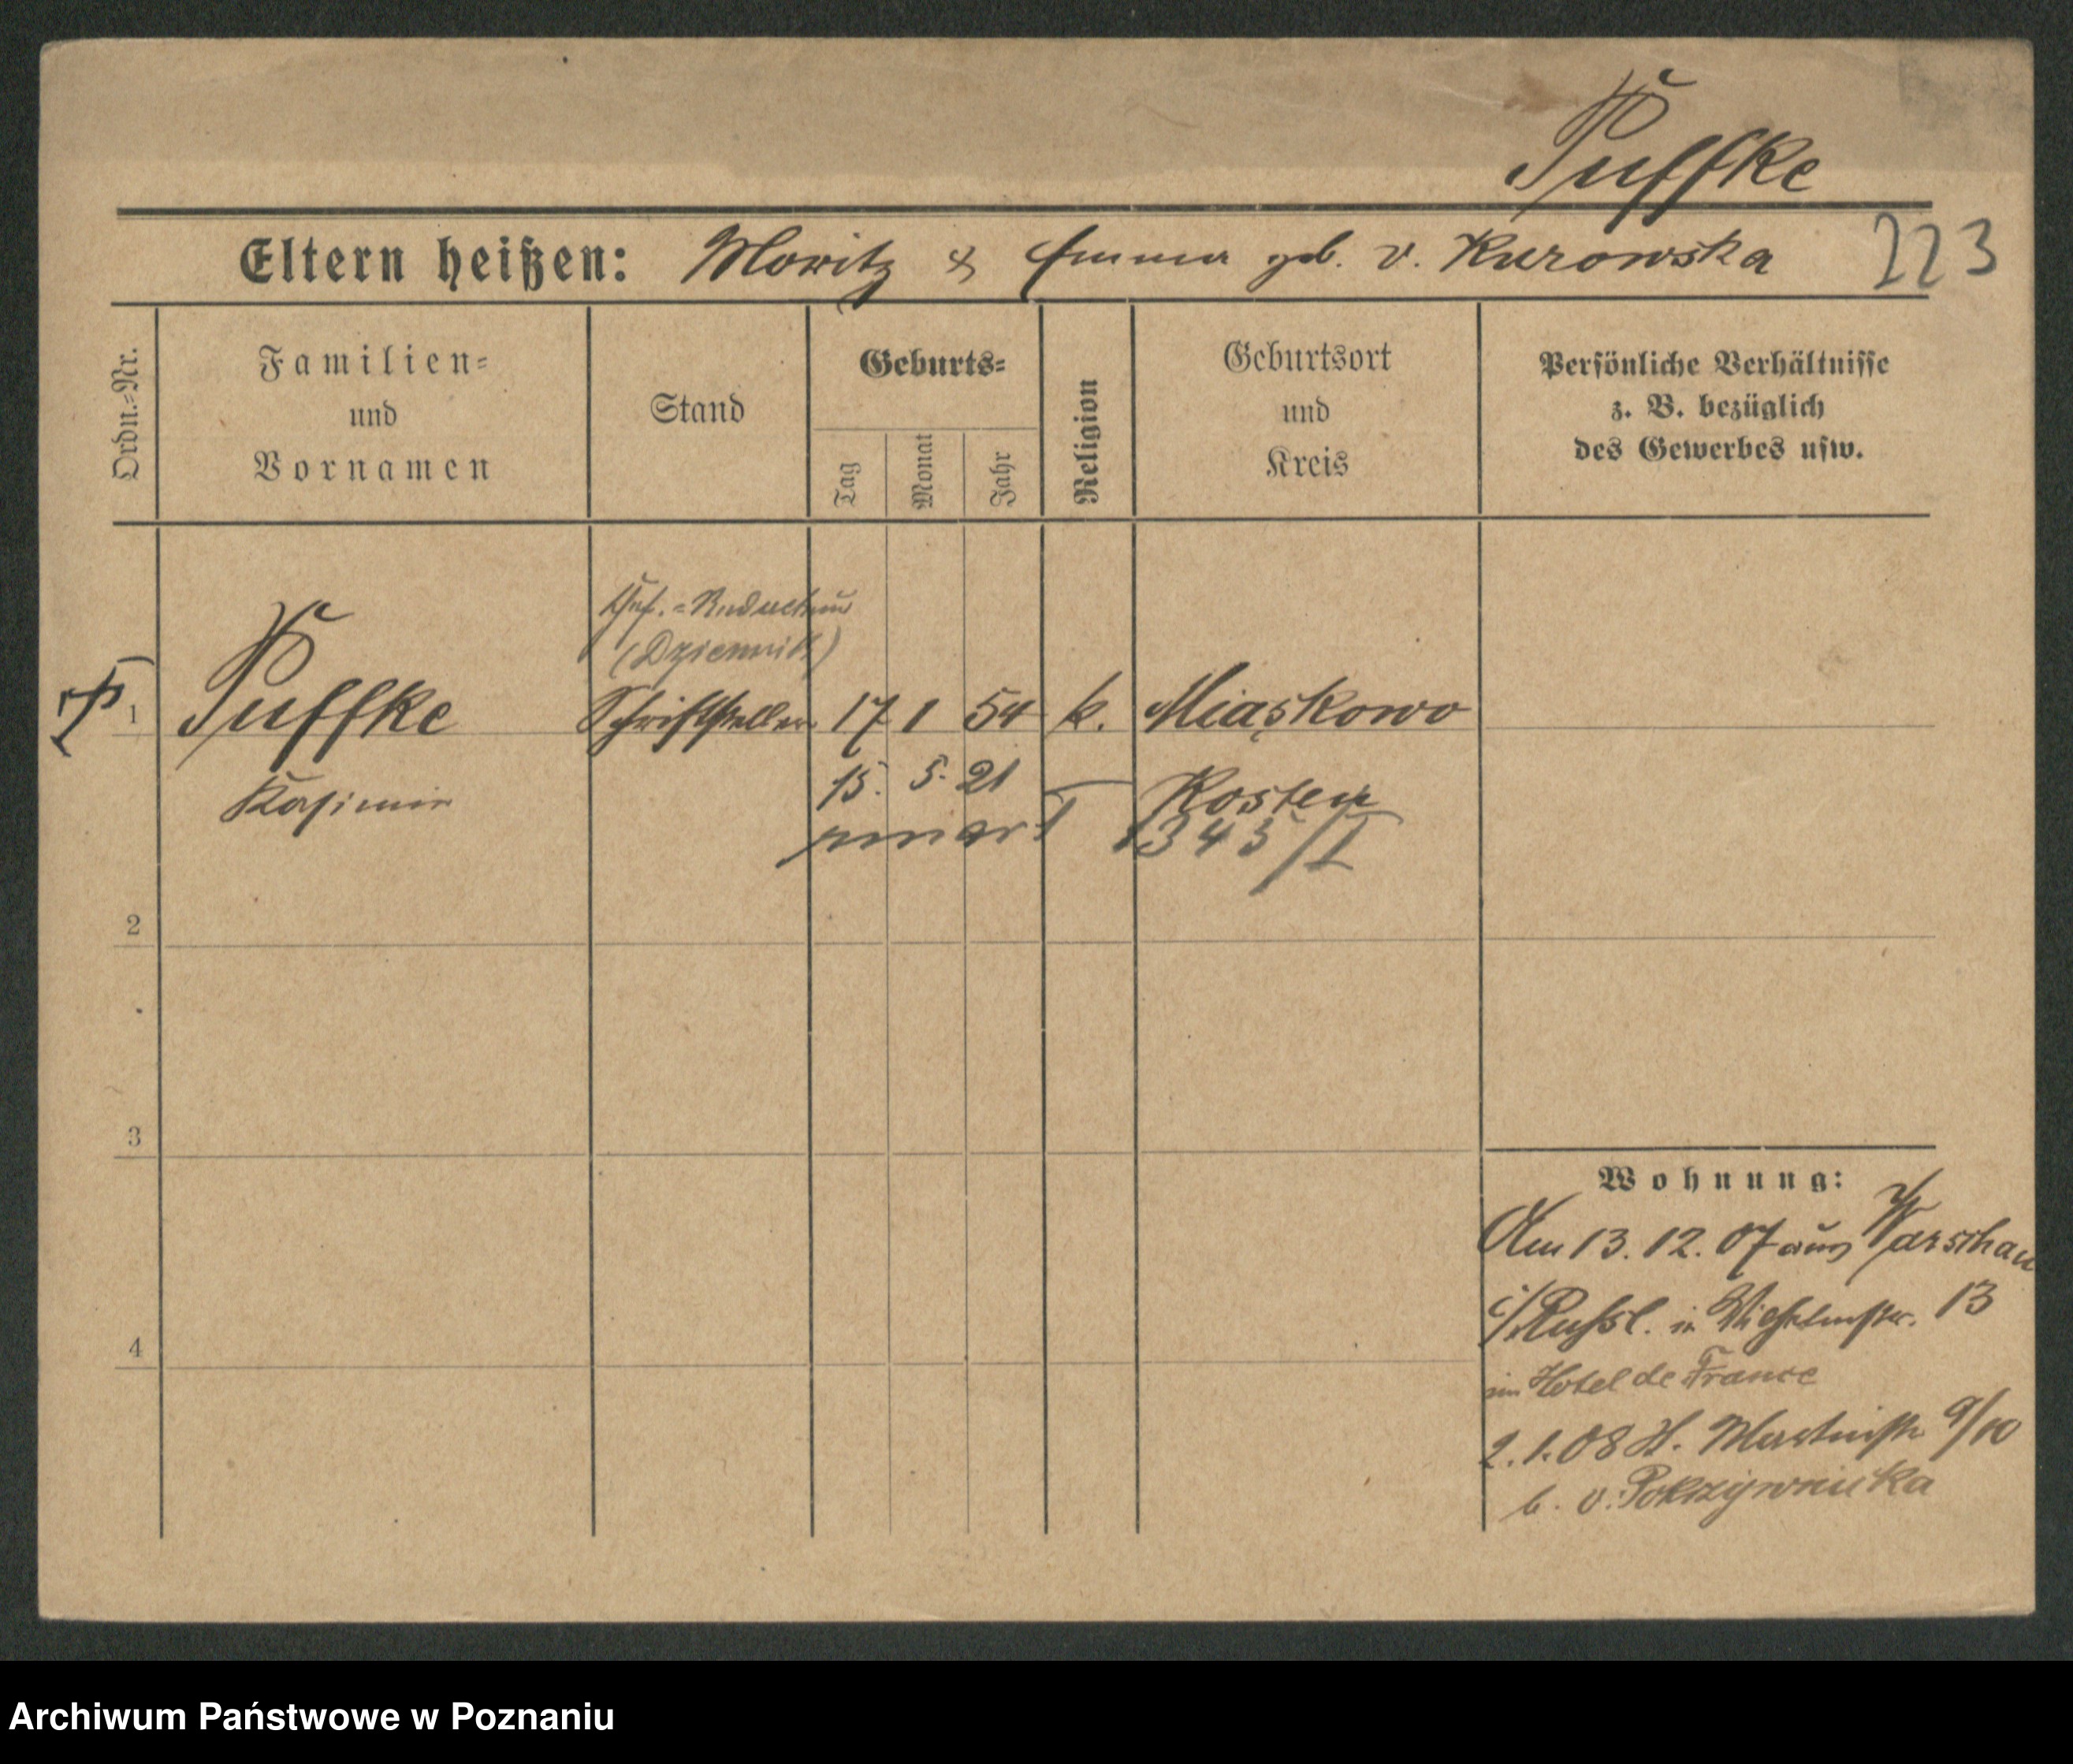 Puffke
Eltern heißen: Moritz & Emma geb. v. Kurowska
223
Ordn.-Nr.
Familien-
und
Vornamen
Stand
Geburts-
Tag
Monat
Jahr
Religion
Geburtsort
und
Kreis
Persönliche Verhältnisse
z. B. bezüglich
des Gewerbes usw.
(Dziennik)
1 Puffke Schriftsteller 17 1 54 k. Miąskowo
Kasimir 15. 5. 21 Kosten
umarł 1343/I
2
3
4
Wohnung:
Am 13. 12. 07 aus Warschau
i/Rußl. in Wilhelmstr. 13
im Hotel de France
2. 1. 08 H. Martinstr 9/10
b. v. Pokrzywnicka
Archiwum Państwowe w Poznaniu